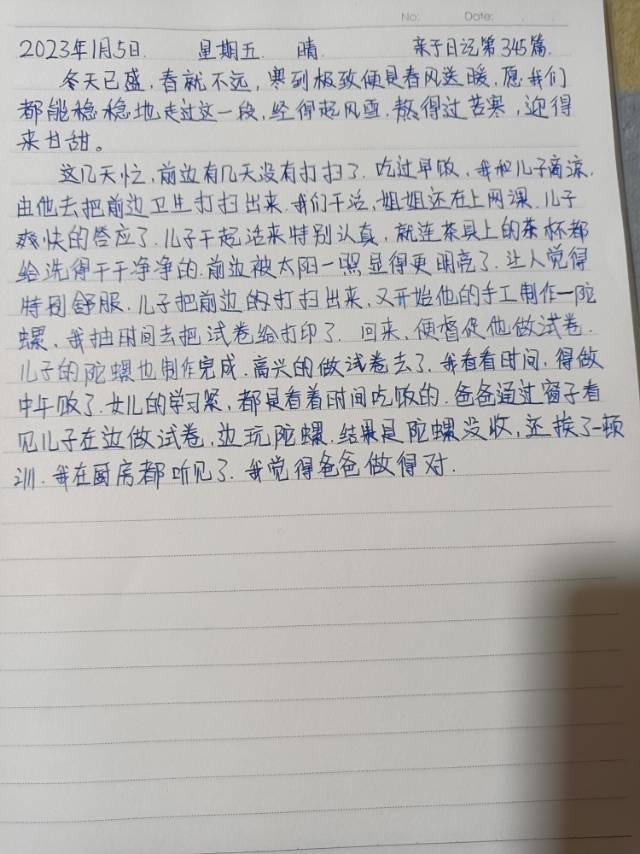 No: Date:
2023年1月5日. 星期五. 晴. 亲子日记第345篇.
冬天已盛,春就不远,寒到极致便是春风送暖,愿我们
都能稳稳地走过这一段,经得起风雪.熬得过苦寒,迎得
来甘甜。
这几天忙,前边有几天没有打扫了.吃过早饭,我和儿子商凉,
由他去把前边卫生打扫出来.我们干活,姐姐还在上网课.儿子
爽快的答应了.儿子干起活来特别认真,就连茶具上的茶杯都
给洗得干干净净的.前边被太阳一照显得更明亮了.让人觉得
特别舒服.儿子把前边的打扫出来,又开始他的手工制作一陀
螺.我抽时间去把试卷给打印了.回来,便督促他做试卷.
儿子的陀螺也制作完成.高兴的做试卷去了.我看看时间,得做
中午饭了.女儿的学习紧,都是看着时间吃饭的.爸爸通过窗子看
见儿子在边做试卷,边玩陀螺.结果是陀螺没收,还挨了一顿
训.我在厨房都听见了.我觉得爸爸做得对.